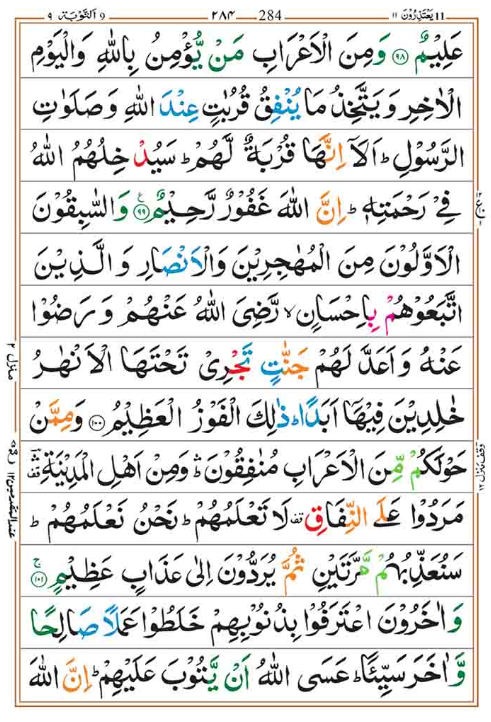 ۹ اَلتَّوْبَة 9 ۲۸۴ 284 11 يَعْتَذِرُوْنَ ۱۱
عَلِيْمٌ ۝۹۸ وَمِنَ الْاَعْرَابِ مَنْ يُّؤْمِنُ بِاللّٰهِ وَالْيَوْمِ
الْاٰخِرِ وَيَتَّخِذُ مَا يُنْفِقُ قُرُبٰتٍ عِنْدَ اللّٰهِ وَصَلَوٰتِ
الرَّسُوْلِ ؕ اَلَاۤ اِنَّهَا قُرْبَةٌ لَّهُمْ ؕ سَيُدْخِلُهُمُ اللّٰهُ
فِيْ رَحْمَتِهٖ ؕ اِنَّ اللّٰهَ غَفُوْرٌ رَّحِيْمٌ ۝۹۹ وَالسّٰبِقُوْنَ
الْاَوَّلُوْنَ مِنَ الْمُهٰجِرِيْنَ وَالْاَنْصَارِ وَالَّذِيْنَ
اتَّبَعُوْهُمْ بِاِحْسَانٍ ۙ رَّضِيَ اللّٰهُ عَنْهُمْ وَرَضُوْا
عَنْهُ وَاَعَدَّ لَهُمْ جَنّٰتٍ تَجْرِيْ تَحْتَهَا الْاَنْهٰرُ
خٰلِدِيْنَ فِيْهَاۤ اَبَدًا ؕ ذٰلِكَ الْفَوْزُ الْعَظِيْمُ ۝۱۰۰ وَمِمَّنْ
حَوْلَكُمْ مِّنَ الْاَعْرَابِ مُنٰفِقُوْنَ ۛؕ وَمِنْ اَهْلِ الْمَدِيْنَةِ ۛ
مَرَدُوْا عَلَى النِّفَاقِ ۟ لَا تَعْلَمُهُمْ ؕ نَحْنُ نَعْلَمُهُمْ ؕ
سَنُعَذِّبُهُمْ مَّرَّتَيْنِ ثُمَّ يُرَدُّوْنَ اِلٰى عَذَابٍ عَظِيْمٍ ۝۱۰۱
وَاٰخَرُوْنَ اعْتَرَفُوْا بِذُنُوْبِهِمْ خَلَطُوْا عَمَلًا صَالِحًا
وَّاٰخَرَ سَيِّئًا ؕ عَسَى اللّٰهُ اَنْ يَّتُوْبَ عَلَيْهِمْ ؕ اِنَّ اللّٰهَ
منزل ۲